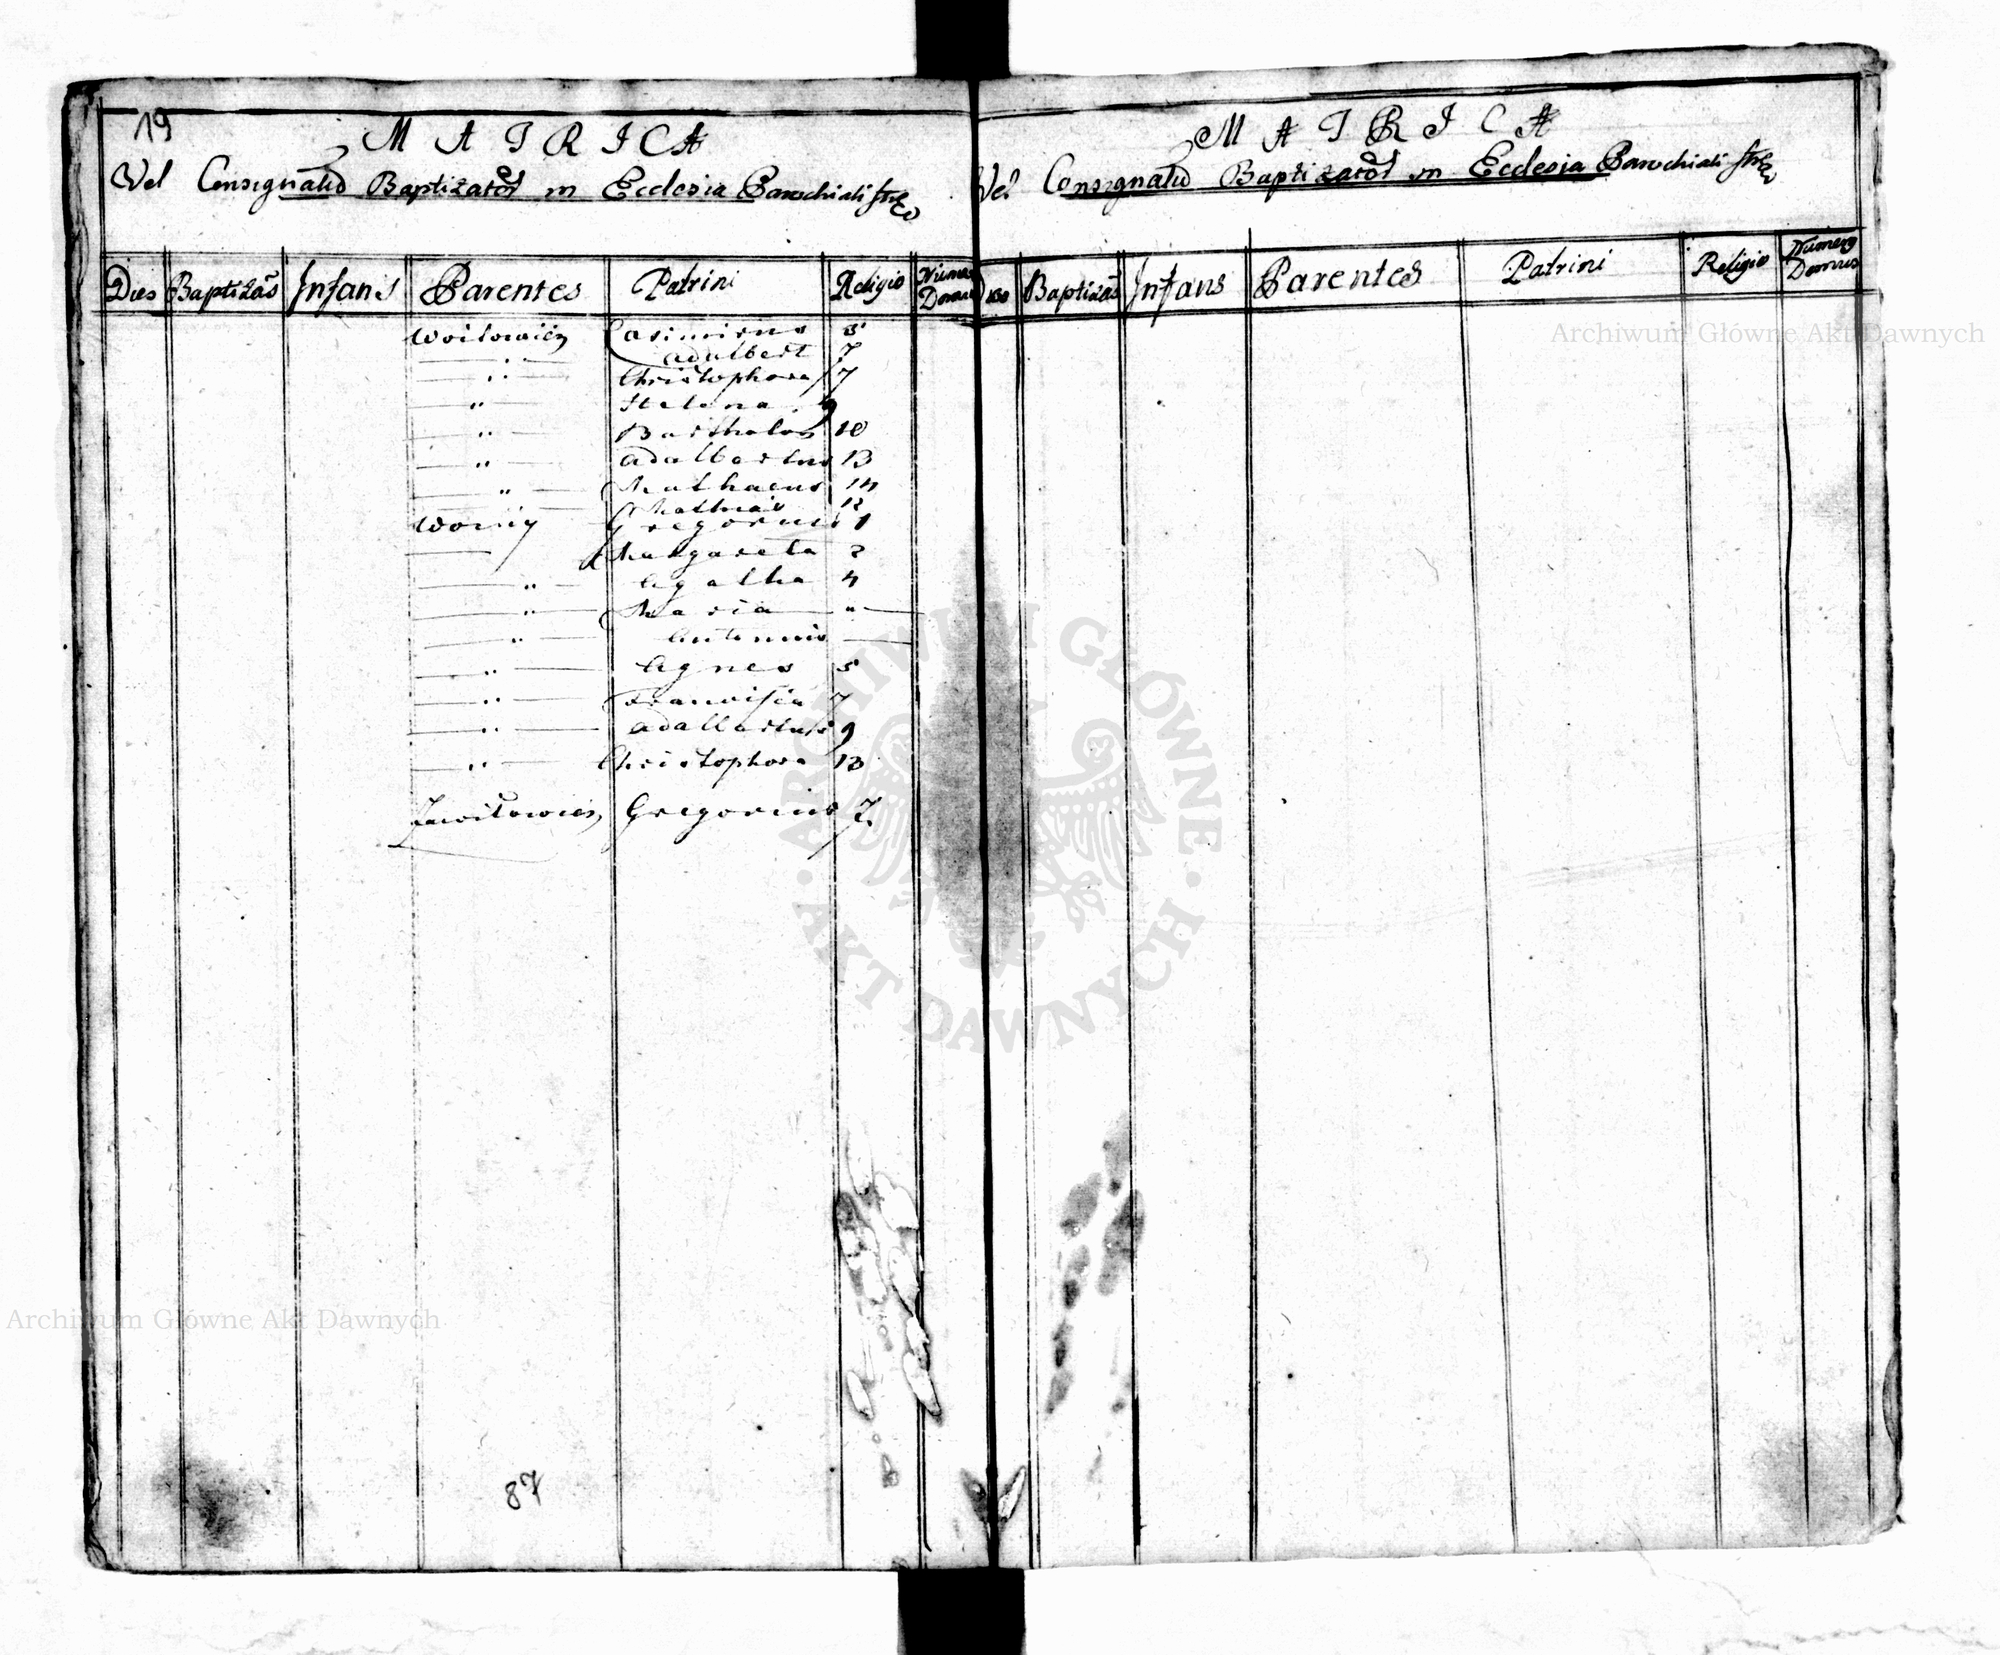 19
MATRICA
Vel Consignatio Baptizator in Ecclesia Parochiali
Dies Baptizãs Infans Parentes Patrini Religio Numerus Domus
Woitowicz Casimirus 5
— " — Adalbert 7
— " — Christophorus 7
— " — Helena 9
— " — Bartholos 10
— " — Adalbertus 13
— " — Mathaeus 14
Mathias 12
Woiciy Gregorius 1
— Margareta 2
— " — Agatha 4
— " — Maria — " —
— " — Antonius —
— " — Agnes 5
— " — Francisca 7
— " — Adalbertus 9
— " — Christophorus 13
Zawitowicz Gregorius 7.
87
MATRICA
Vel Consignatio Baptizator in Ecclesia Parochiali
Dies Baptizãs Infans Parentes Patrini Religio Numerus Domus
Archiwum Główne Akt Dawnych
ARCHIWUM GŁÓWNE · AKT DAWNYCH ·
Archiwum Główne Akt Dawnych